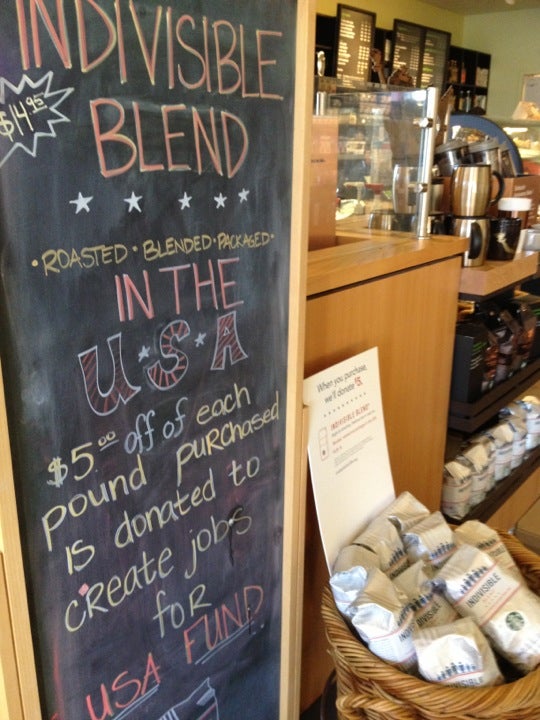 INDIVISIBLE
$14.95
BLEND
• ROASTED • BLENDED • PACKAGED •
IN THE
U★S★A
$5.00 off of each
pound purchased
is donated to
create jobs
for
USA FUND
When you purchase,
we'll donate $5.
INDIVISIBLE BLEND
INDIVISIBLE
INDIVISIBLE
INDIVISIBLE